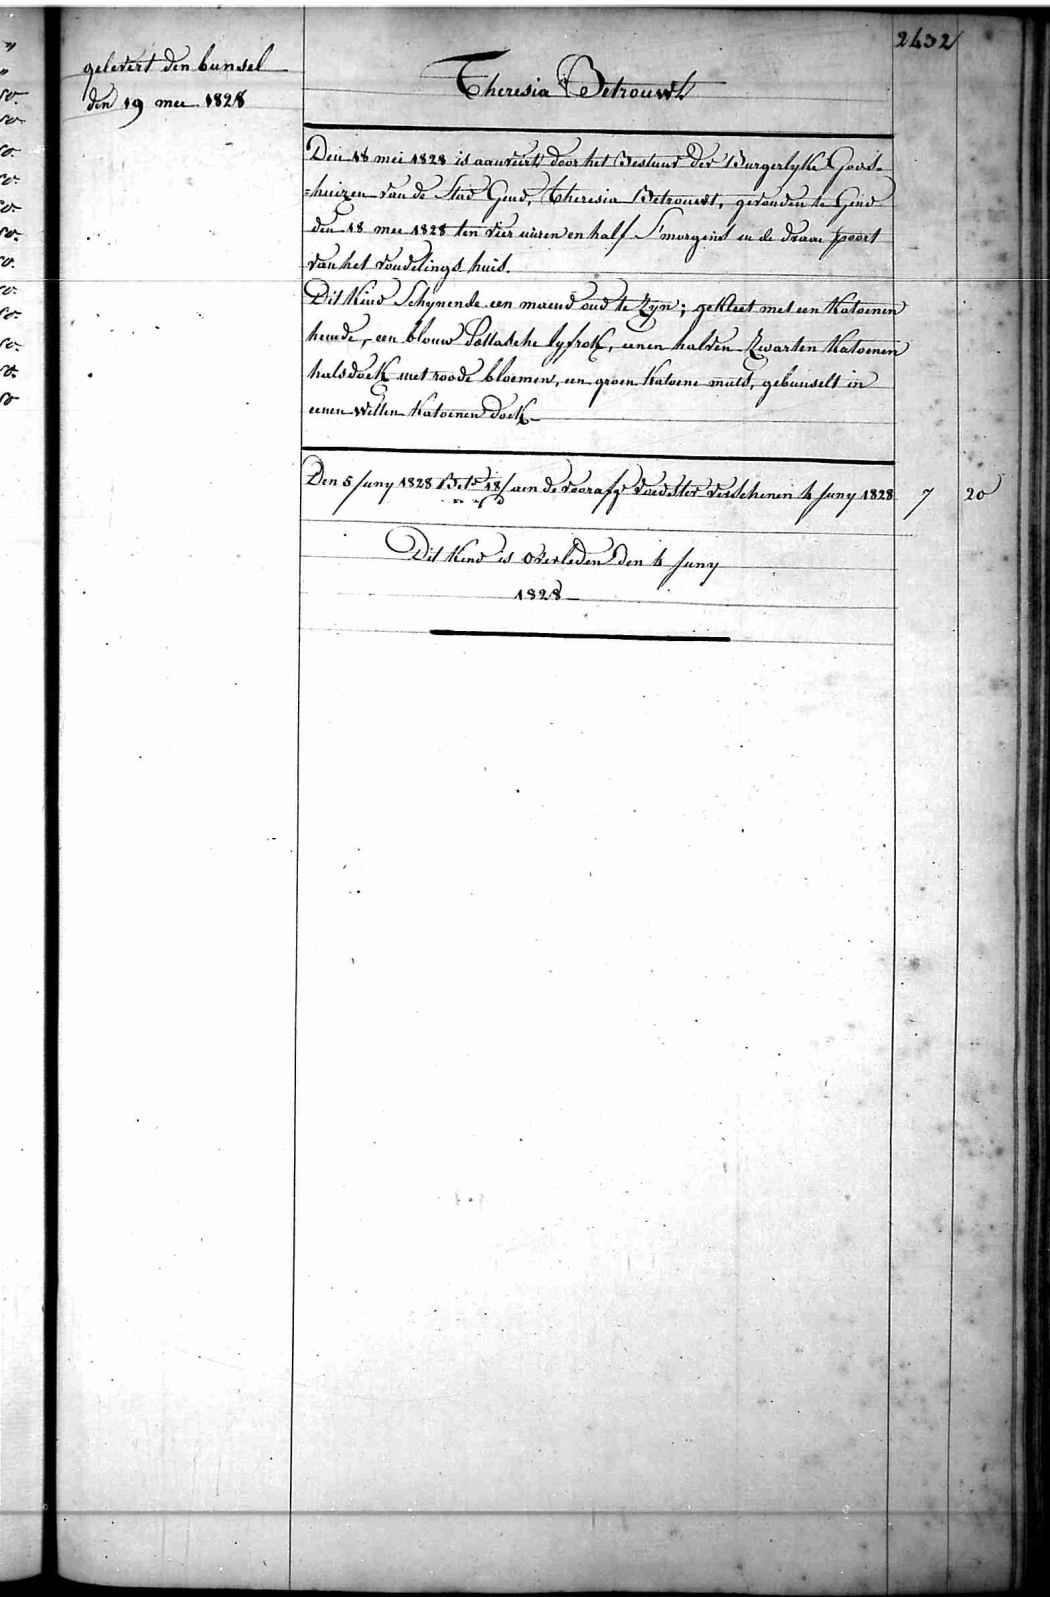 2432
gelevert den bunsel
den 19 mee 1828
Theresia Betrouwt
Den 18 mei 1828 is aanveirt door het Bestuur der Burgerlyke Gods-
=huizen van de Stad Gend, Theresia Betrouwt, gevonden te Gend
den 18 mee 1828 ten vier uuren en half S'morgens in de draai poort
van het vondelings huis.
Dit Kind Schynende een maend oud te Zyn; gekleet met een Katoenen
hemde, een blouw Pollasche lyfrok, eenen halven Zwarten Katoenen
halsdoek met roode bloemen, een groen Katoene muts, gebunselt in
eenen Witten Katoenen doek
Den 5 Juny 1828 Bets 18/ aen de voorafg Voedster verschenen 4 Juny 1828 7 20
Dit Kind is overleden den 4 Juny
1828